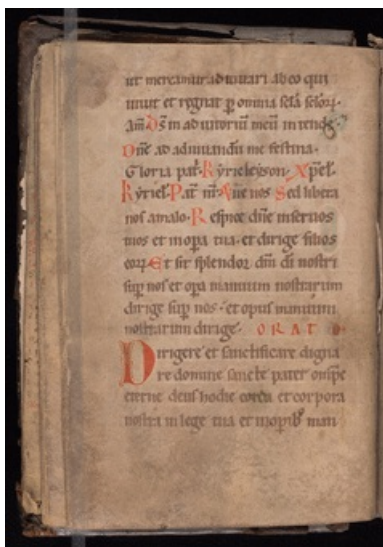 ut mereamur adiuuari ab eo qui
uiuit et regnat p omnia scła scłoꝝ.
Am̄ Ds̄ in adiutoriū meū intende
Dn̄e ad adiuuandū me festina.
Gloria pat. Kyrieleyson. Xp̄el.
Kyriel. Pat n̄r. & ne nos Sed libera
nos amalo. Respice dn̄e inseruos
tuos et inopa tua. et dirige filios
eoꝝ. Et sit splendor dn̄i di nostri
sup nos et opa manuum nostrarum
dirige sup nos. et opus manuum
nostrarum dirige. ORATIO
Dirigere et sanctificare digna
re domine sancte pater omps
eterne deus hodie corda et corpora
nostra in lege tua et inopib; man